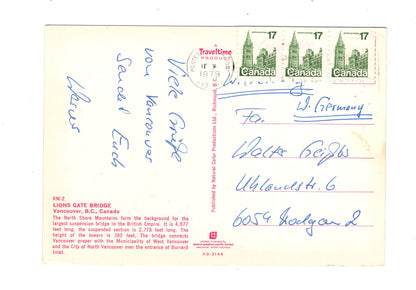 Viele Grüße
von Vancouver
sendet Euch
KM-2
LIONS GATE BRIDGE
Vancouver, B.C., Canada
The North Shore Mountains form the background for the
largest suspension bridge in the British Empire. It is 4,977
feet long, the suspended section is 2,778 feet long. The
height of the towers is 380 feet. The bridge connects
Vancouver proper with the Municipality of West Vancouver
and the City of North Vancouver over the entrance of Burrard
Inlet.
Traveltime
PRODUCT
Published by Natural Color Productions Ltd., Richmond, B.C.
KS-3144
1979
17
Canada
17
Canada
17
Canada
W. Germany
Fa.
Walter
Uhlandstr. 6
6054 Rodgau 2